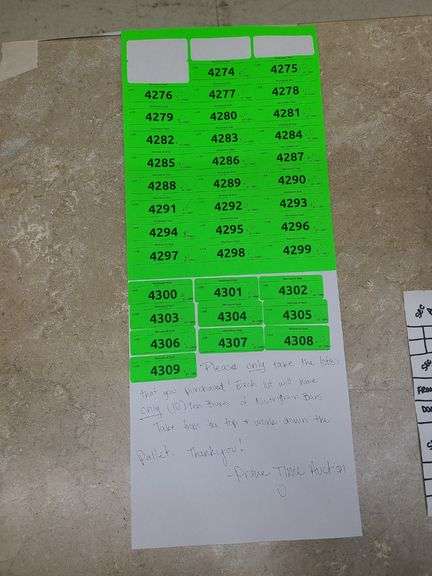 4274 4275
4276 4277 4278
4279 4280 4281
4282 4283 4284
4285 4286 4287
4288 4289 4290
4291 4292 4293
4294 4295 4296
4297 4298 4299
4300 4301 4302
4303 4304 4305
4306 4307 4308
4309 Please only take the lots
that you purchased! Each lot will have
only (10) Ten Boxes of Nutrition Bars
Take from the top & work down the
pallet. Thank you!
- Prime Time Auction